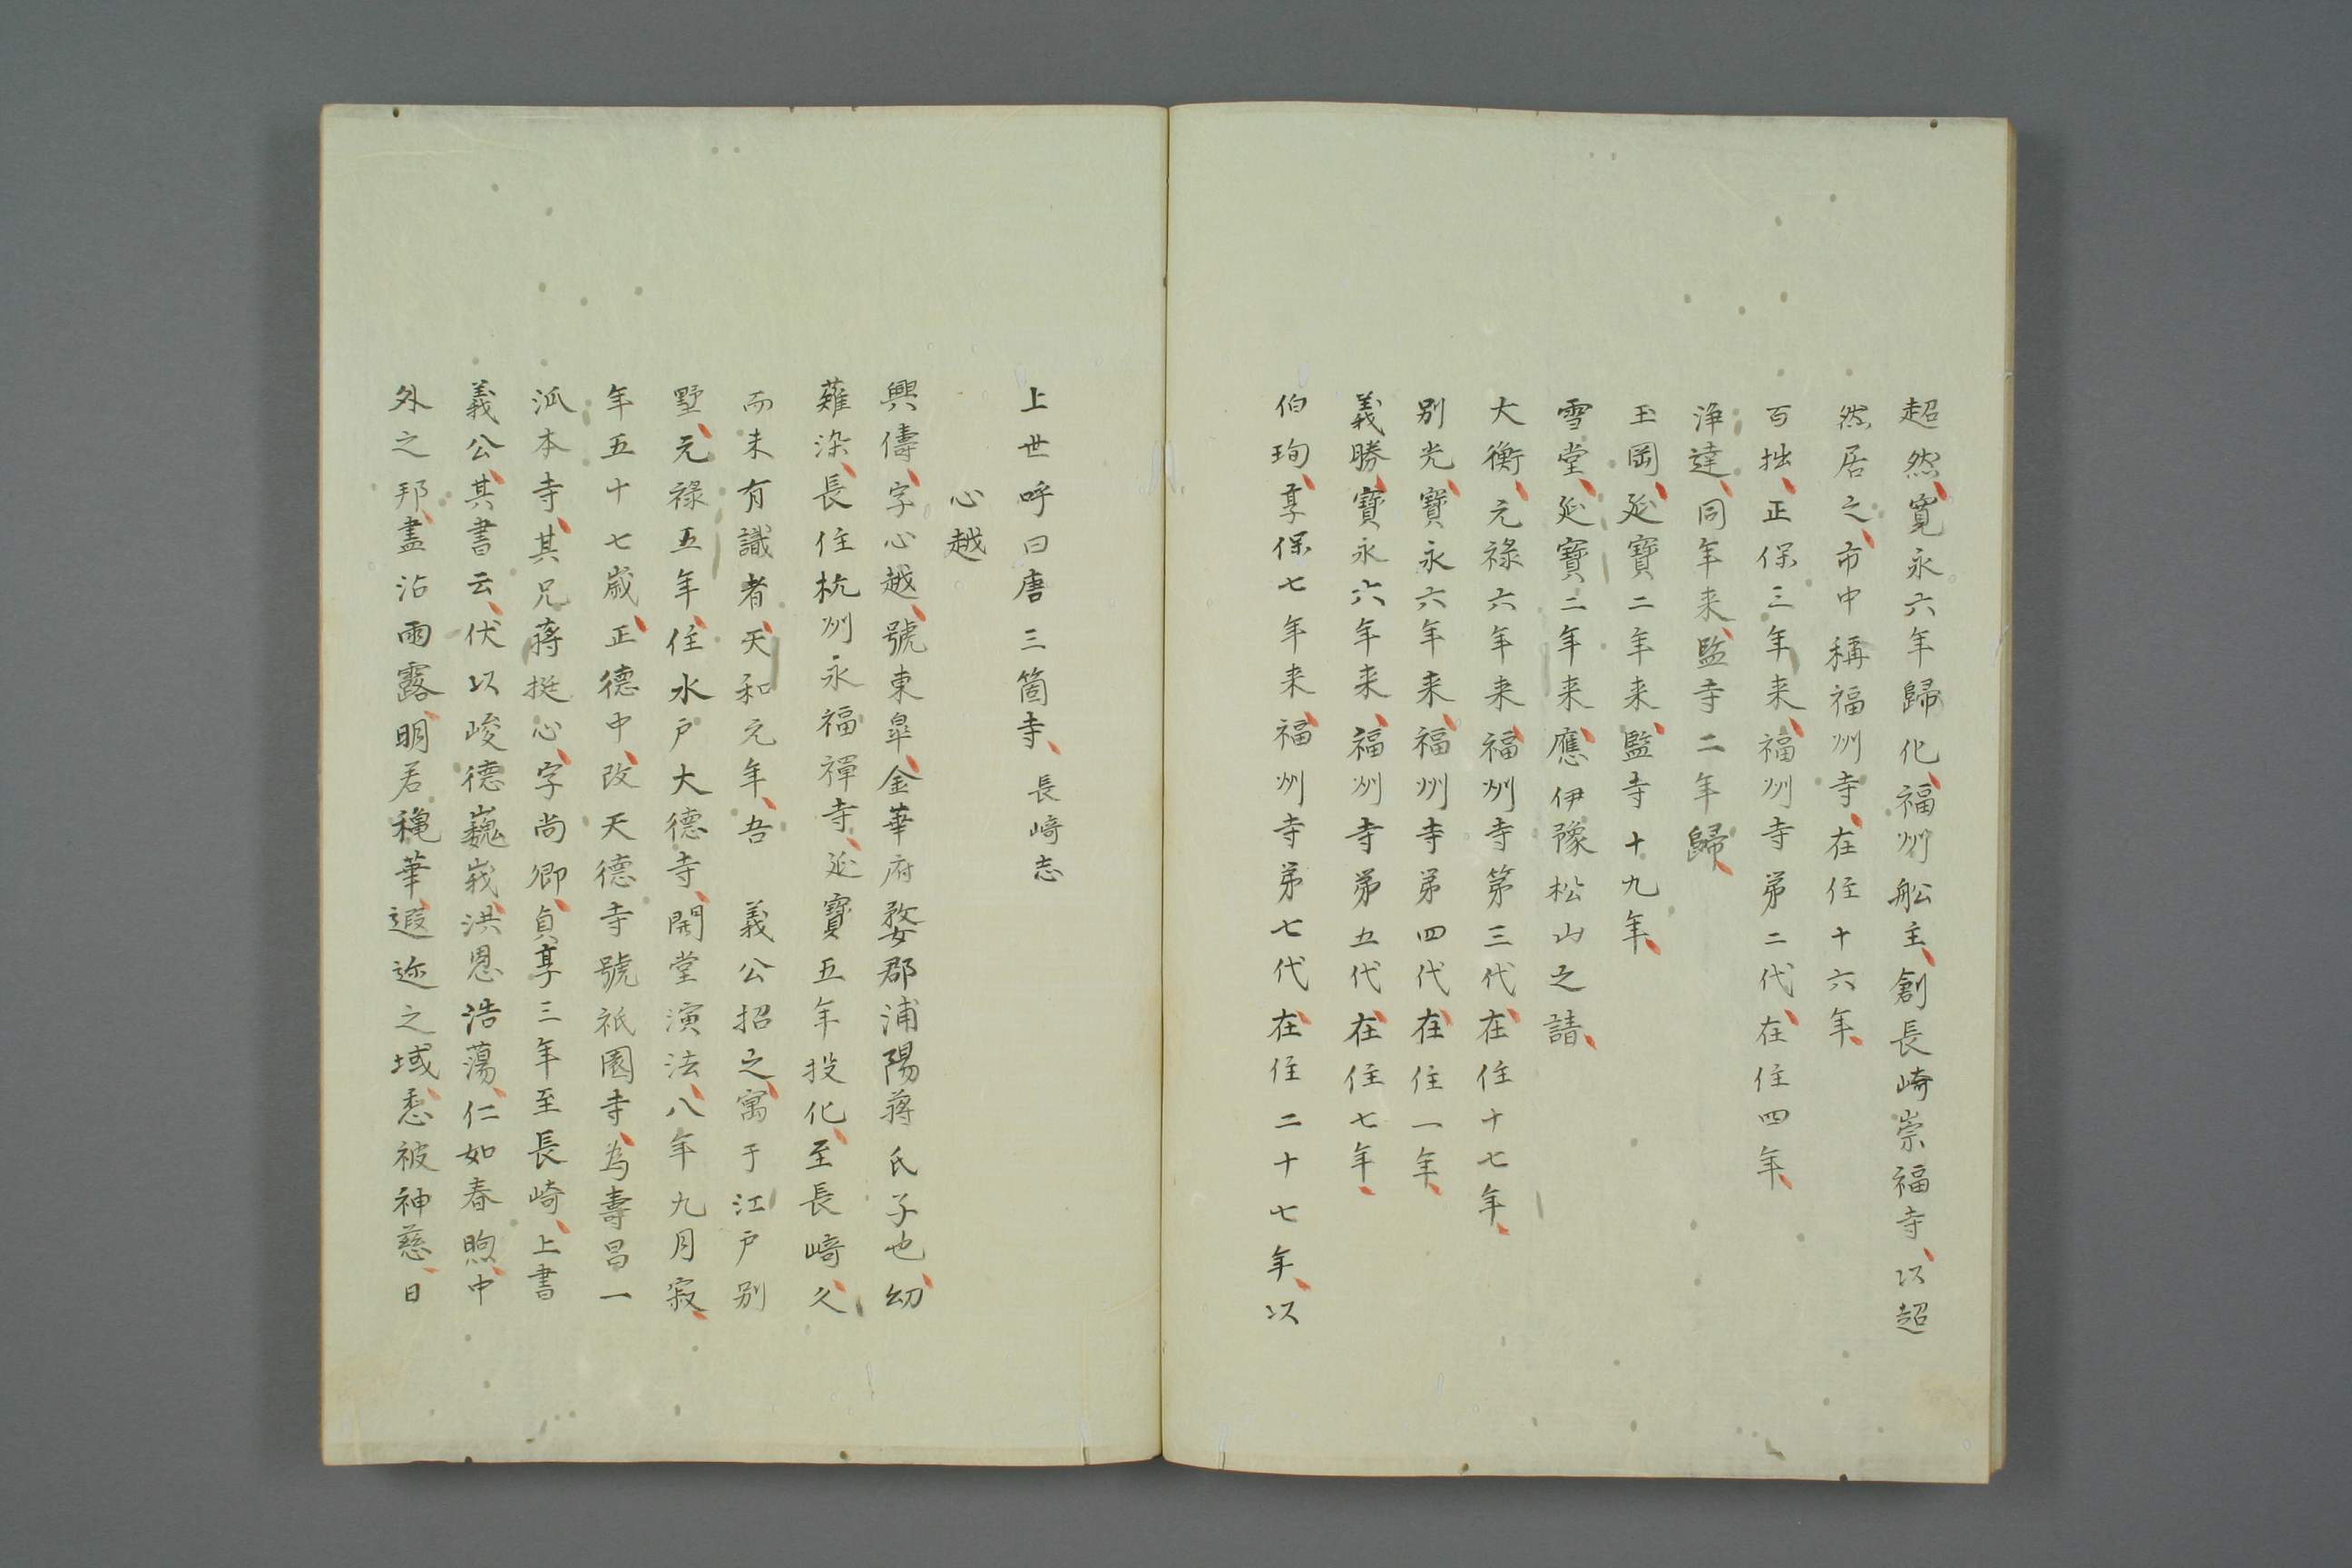 超然、寛永六年歸化、福州船主、創長崎崇福寺、以超
然居之、市中稱福州寺、在住十六年、
百拙、正保三年来、福州寺第二代、在住四年、
淨達、同年来、監寺二年歸、
玉岡、延寶二年来、監寺十九年、
雪堂、延寶二年来、應伊豫松山之請、
大衡、元禄六年来、福州寺第三代、在住十七年、
別光、寶永六年来、福州寺第四代、在住一年、
義勝、寶永六年来、福州寺第五代、在住七年、
伯珣、享保七年来、福州寺第七代、在住二十七年、以
上世呼曰唐三箇寺、長崎志
心越
興儔、字心越、號東皐、金華府婺郡浦陽蔣氏子也、幼
薙染、長住杭州永福禪寺、延寶五年投化、至長崎、久
而未有識者、天和元年、吾　義公招之、寓于江戸別
墅、元禄五年、住水戸大德寺、開堂演法、八年九月寂、
年五十七歳、正德中、改天德寺號祇園寺、為壽昌一
派本寺、其兄蔣挺心、字尚卿、貞享三年至長崎、上書
義公、其書云、伏以峻德巍峩、洪恩浩蕩、仁如春煦、中
外之邦、盡沾雨露、明若穐華、遐迩之域、悉被神慈、日